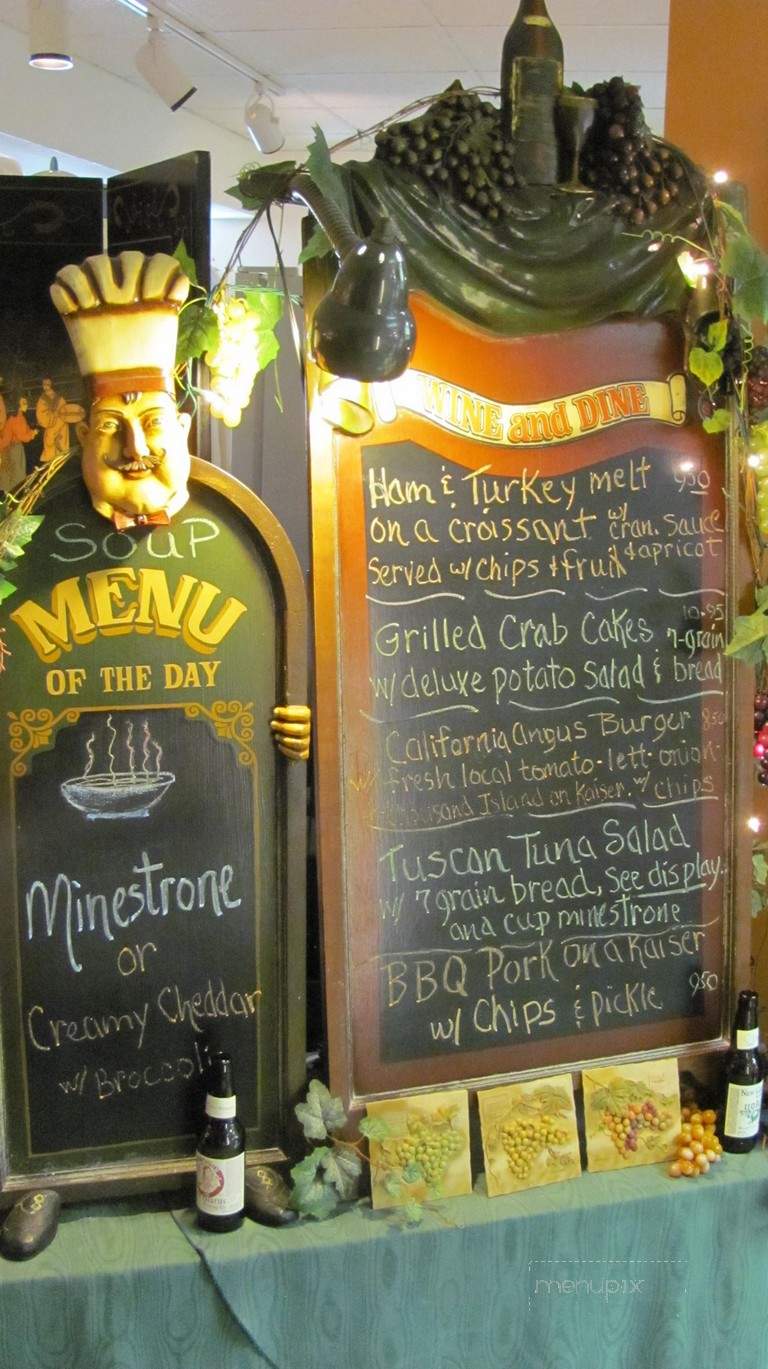 SOUP
MENU
OF THE DAY
Minestrone
or
Creamy Cheddar
w/ Broccoli
WINE and DINE
Ham & Turkey melt 950
on a croissant w/ cran. sauce
served w/ chips & fruit & apricot
Grilled Crab Cakes 10.95
w/ deluxe potato Salad & 7-grain bread
California Angus Burger 850
w/ fresh local tomato-lett-onion-
thousand Island on Kaiser w/ chips
Tuscan Tuna Salad
w/ 7 grain bread, see display..
and cup minestrone
BBQ Pork on a Kaiser
w/ Chips & pickle 950
menupix